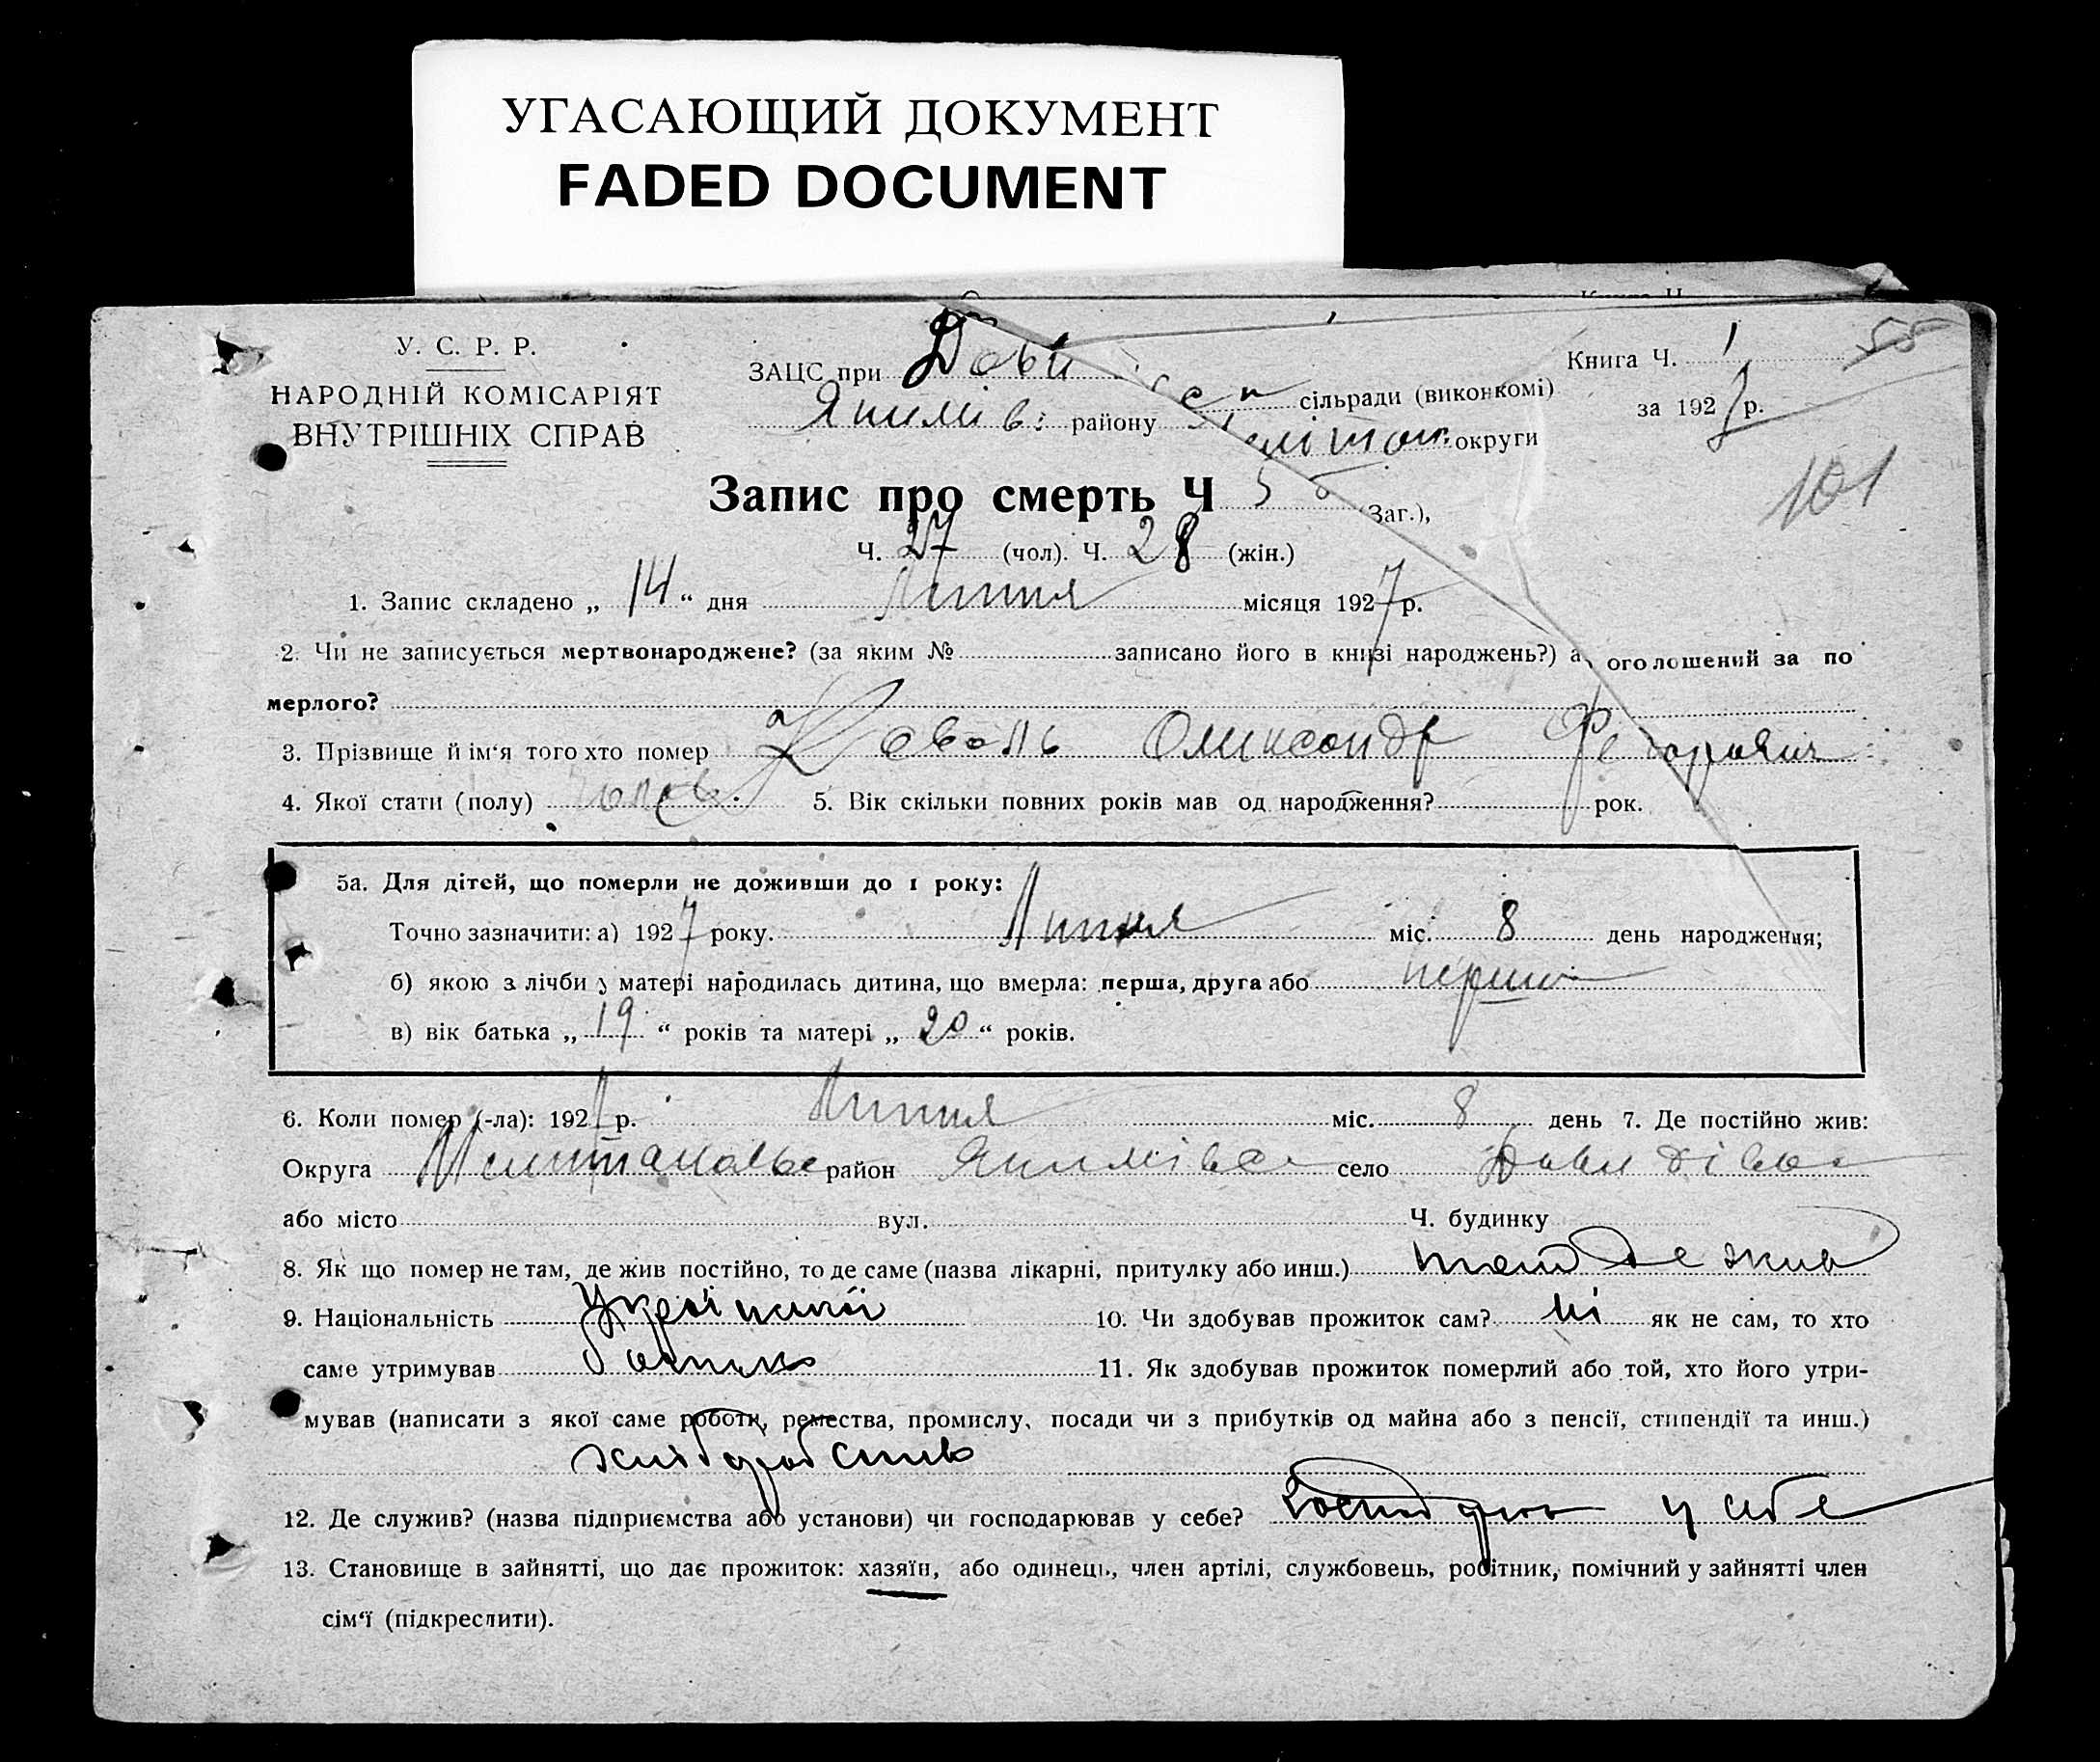 УГАСАЮЩИЙ ДОКУМЕНТ
FADED DOCUMENT
У. С. Р. Р.
НАРОДНІЙ КОМІСАРІЯТ
ВНУТРІШНІХ СПРАВ
ЗАЦС при Дови сільради (виконкомі)
Якимів: району округи
Книга Ч. 1
55
за 1927 р.
101
Запис про смерть Ч 55 (Заг.),
Ч. 27 (чол). Ч. 28 (жін.)
1. Запис складено „ 14 “ дня Липня місяця 1927 р.
2. Чи не записується мертвонароджене? (за яким № записано його в книзі народжень?) а оголошений за по
мерлого?
3. Прізвище й ім‘я того хто помер Коваль Олександр Федорович
4. Якої стати (полу) 5. Вік скільки повних років мав од народження? рок.
5а. Для дітей, що померли не доживши до 1 року:
Точно зазначити: а) 1927 року. Липня міс. 8 день народження;
б) якою з лічби у матері народилась дитина, що вмерла: перша, друга або перша
в) вік батька „ 19 “ років та матері „ 20 “ років.
6. Коли помер (-ла): 1927 р. Липня міс. 8 день 7. Де постійно жив:
Округа район село
або місто вул. Ч. будинку
8. Як що помер не там, де жив постійно, то де саме (назва лікарні, притулку або инш.) там де жив
9. Національність 10. Чи здобував прожиток сам? ні як не сам, то хто
саме утримував батько 11. Як здобував прожиток померлий або той, хто його утри-
мував (написати з якої саме роботи, ремества, промислу, посади чи з прибутків од майна або з пенсії, стипендії та инш.)
12. Де служив? (назва підприємства або установи) чи господарював у себе? у себе
13. Становище в зайнятті, що дає прожиток: хазяїн, або одинець, член артілі, службовець, робітник, помічний у зайнятті член
сім‘ї (підкреслити).